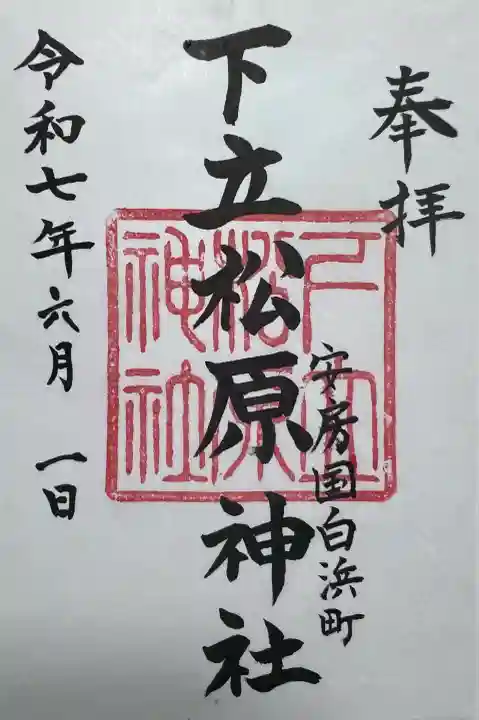 奉拝
安房国白浜町
下立松原神社
下立松原神社
令和七年六月一日